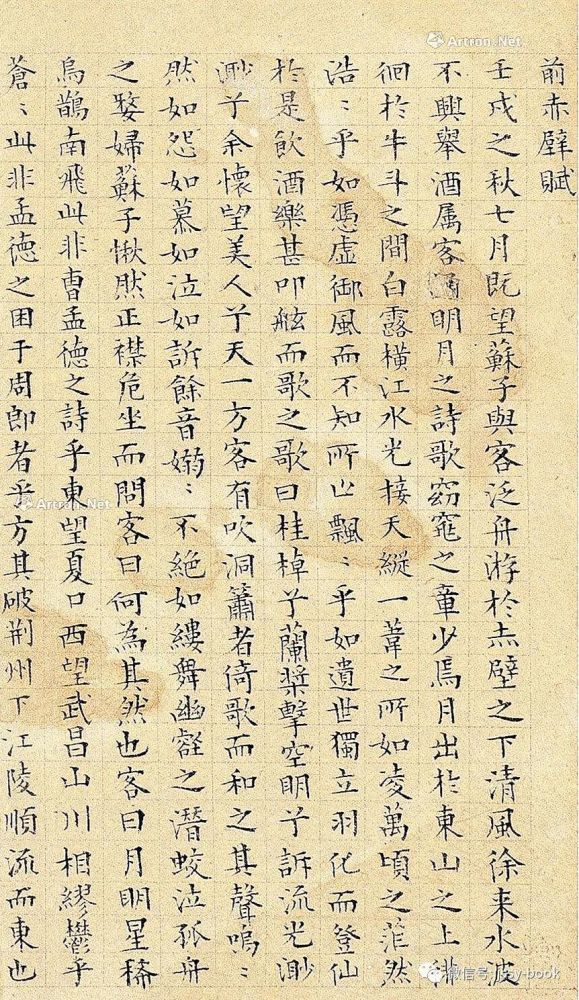 前赤壁賦
壬戌之秋七月既望蘇子與客泛舟游於赤壁之下清風徐来水波
不興舉酒属客明月之詩歌窈窕之章少焉月出於東山之上徘
徊於牛斗之間白露橫江水光接天縱一葦之所如凌萬頃之茫然
浩〻乎如憑虛御風而不知所止飄〻乎如遺世獨立羽化而登仙
於是飲酒樂甚叩舷而歌之歌曰桂棹兮蘭槳擊空明兮訴流光渺
渺兮余懷望美人兮天一方客有吹洞簫者倚歌而和之其聲嗚〻
然如怨如慕如泣如訴餘音嫋〻不絕如縷舞幽壑之潛蛟泣孤舟
之嫠婦蘇子愀然正襟危坐而問客曰何為其然也客曰月明星稀
烏鵲南飛此非曹孟德之詩乎東望夏口西望武昌山川相繆鬱乎
蒼〻此非孟德之困于周郎者乎方其破荆州下江陵順流而東也
Artron.Net
Artron.Net
微信号